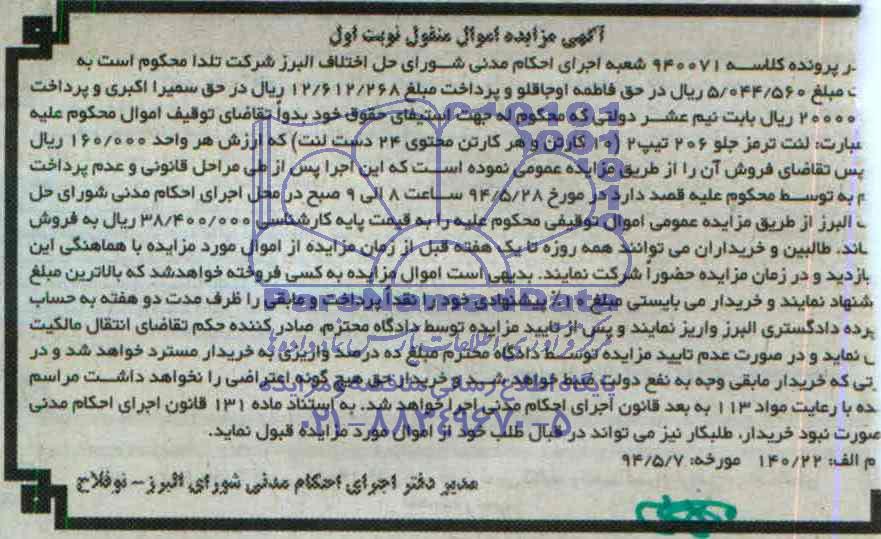 آگهی مزایده اموال منقول نوبت اول
در پرونده کلاسه ۹۴۰۰۷۱ شعبه اجرای احکام مدنی شورای حل اختلاف البرز شرکت تلدا محکوم است به
مبلغ ۵/۰۴۴/۵۶۰ ریال در حق فاطمه اوجاقلو و پرداخت مبلغ ۱۲/۶۱۲/۲۶۸ ریال در حق سمیرا اکبری و پرداخت
۲۰۰۰۰۰ ریال بابت نیم عشر دولتی که محکوم له جهت استیفای حقوق خود بدواً تقاضای توقیف اموال محکوم علیه
عبارت: لنت ترمز جلو ۲۰۶ تیپ۲ (۱۰ کارتن و هر کارتن محتوی ۲۴ دست لنت) که ارزش هر واحد ۱۶۰/۰۰۰ ریال
پس تقاضای فروش آن را از طریق مزایده عمومی نموده است که این اجرا پس از طی مراحل قانونی و عدم پرداخت
به توسط محکوم علیه قصد دارد در مورخ ۹۴/۵/۲۸ ساعت ۸ الی ۹ صبح در محل اجرای احکام مدنی شورای حل
البرز از طریق مزایده عمومی اموال توقیفی محکوم علیه را به قیمت پایه کارشناسی ۳۸/۴۰۰/۰۰۰ ریال به فروش
ساند. طالبین و خریداران می توانند همه روزه تا یک هفته قبل از زمان مزایده از اموال مورد مزایده با هماهنگی این
بازدید و در زمان مزایده حضوراً شرکت نمایند. بدیهی است اموال مزایده به کسی فروخته خواهدشد که بالاترین مبلغ
شنهاد نمایند و خریدار می بایستی مبلغ ۱۰٪ پیشنهادی خود را نقداً پرداخت و مابقی را ظرف مدت دو هفته به حساب
پرده دادگستری البرز واریز نمایند و پس از تایید مزایده توسط دادگاه محترم، صادرکننده حکم تقاضای انتقال مالکیت
نماید و در صورت عدم تایید مزایده توسط دادگاه محترم مبلغ ده درصد واریزی به خریدار مسترد خواهد شد و در
تی که خریدار مابقی وجه به نفع دولت ضبط خواهد شد و خریدار حق هیچ گونه اعتراضی را نخواهد داشت مراسم
ده با رعایت مواد ۱۱۳ به بعد قانون اجرای احکام مدنی اجرا خواهد شد. به استناد ماده ۱۳۱ قانون اجرای احکام مدنی
صورت نبود خریدار، طلبکار نیز می تواند در قبال طلب خود از اموال مورد مزایده قبول نماید.
م الف: ۱۴۰/۲۲ مورخه: ۹۴/۵/۷
مدیر دفتر اجرای احکام مدنی شورای البرز - نوفلاح
ParsNamadData
پایگاه اطلاع رسانی مناقصه و مزایده
۰۲۱-۸۸۳۴۹۶۷۰-۵